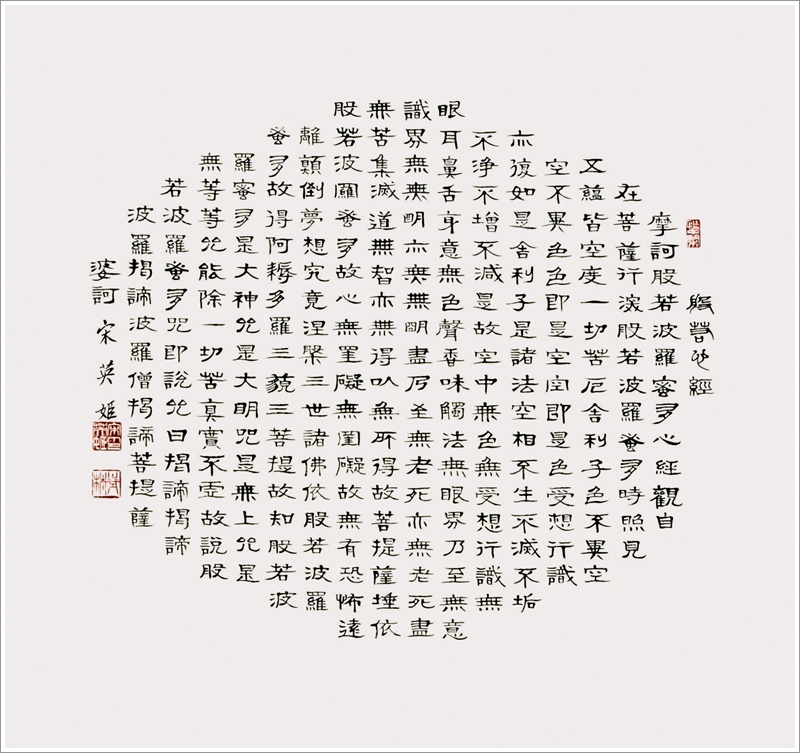 般若心經
摩訶般若波羅蜜多心經觀自
在菩薩行深般若波羅蜜多時照見
五蘊皆空度一切苦厄舍利子色不異空
空不異色色即是空空即是色受想行識
亦復如是舍利子是諸法空相不生不滅不垢
不淨不增不減是故空中無色無受想行識無
眼耳鼻舌身意無色聲香味觸法無眼界乃至無意
識界無無明亦無無明盡乃至無老死亦無老死盡
無苦集滅道無智亦無得以無所得故菩提薩埵依
般若波羅蜜多故心無罣礙無罣礙故無有恐怖遠
離顛倒夢想究竟涅槃三世諸佛依般若波羅
蜜多故得阿耨多羅三藐三菩提故知般若波
羅蜜多是大神呪是大明呪是無上呪是
無等等呪能除一切苦真實不虛故說般
若波羅蜜多呪即說呪曰揭諦揭諦
波羅揭諦波羅僧揭諦菩提薩
婆訶 宋英姬